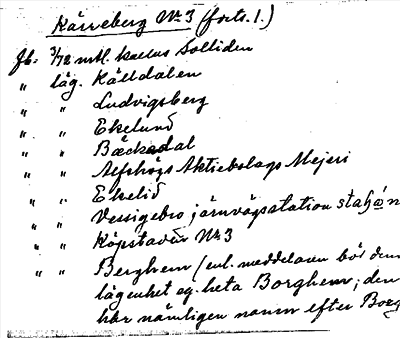 Kärreberg No 3 (forts. 1.)
Jb. 3/72 mtl. kallas Solliden
" läg. Källdalen
" " Ludvigsberg
" " Ekelund
" " Bäckadal
" " Alfshögs Aktiebolags Mejeri
" " Ekelid
" " Vessigebro järnvägsstation
" " Köpstaden No 3
" " Berghem / enl. meddelaren bör den
lägenhet eg. heta Borghem; den
har nämligen namn efter Borg